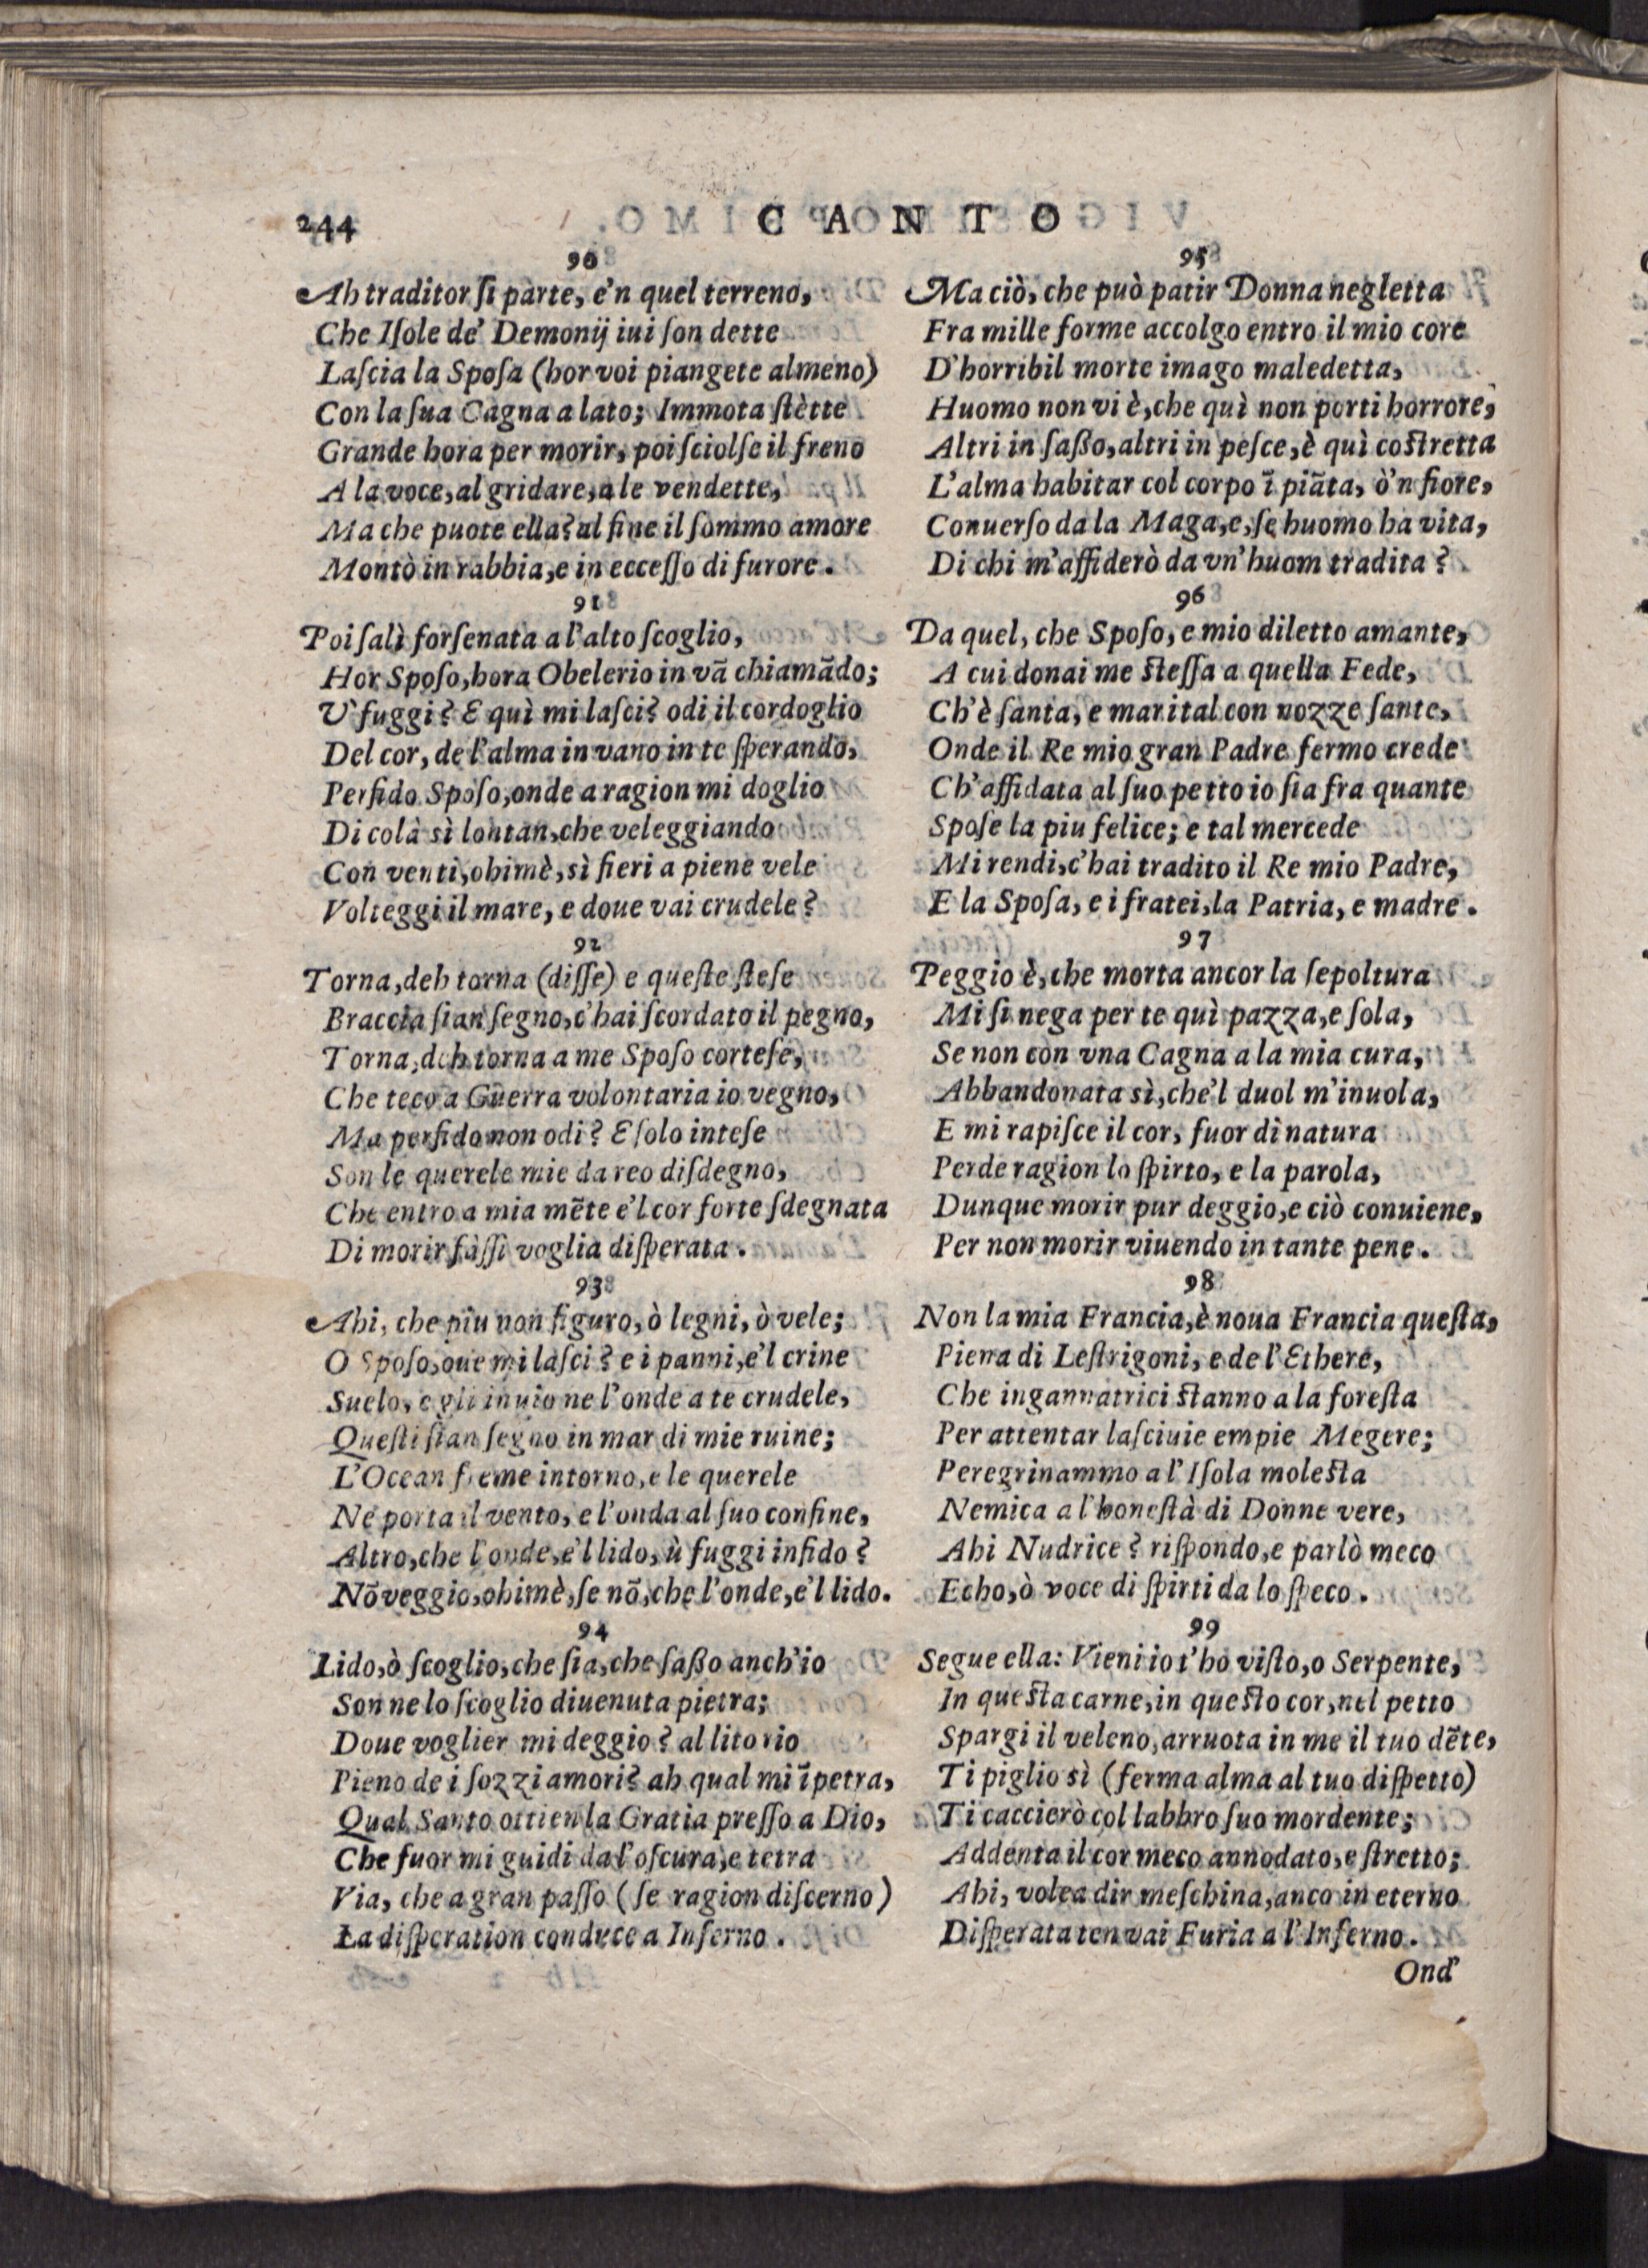 244 CANTO
90
Ah traditor ſi parte, e'n quel terreno,
Che Iſole de' Demonij iui ſon dette
Laſcia la Spoſa (hor voi piangete almeno)
Con la ſua Cagna a lato; Immota ſtètte
Grande hora per morir, poi ſciolſe il freno
A la voce, al gridare, a le vendette,
Ma che puote ella? al fine il ſommo amore
Montò in rabbia, e in ecceſſo di furore.
91
Poi ſalì forſenata a l'alto ſcoglio,
Hor Spoſo, hora Obelerio in vã chiamãdo;
V' fuggi? E quì mi laſci? odi il cordoglio
Del cor, de l'alma in vano in te ſperando,
Perfido Spoſo, onde a ragion mi doglio
Di colà sì lontan, che veleggiando
Con venti, ohimè, sì fieri a piene vele
Volteggi il mare, e doue vai crudele?
92
Torna, deh torna (diſſe) e queſte ſteſe
Braccia ſian ſegno, c'hai ſcordato il pegno,
Torna, deh torna a me Spoſo corteſe,
Che teco a Guerra volontaria io vegno,
Ma perfido non odi? E ſolo inteſe
Son le querele mie da reo diſdegno,
Che entro a mia mẽte e'l cor forte ſdegnata
Di morir fàſſi voglia diſperata.
93
Ahi, che piu non figuro, ò legni, ò vele;
O Spoſo, oue mi laſci? e i panni, e'l crine
Suelo, e gli inuio ne l'onde a te crudele,
Queſti ſian ſegno in mar di mie ruine;
L'Ocean freme intorno, e le querele
Ne porta il vento, e l'onda al ſuo confine,
Altro, che l'onde, e'l lido, ù fuggi infido?
Nõ veggio, ohimè, ſe nõ, che l'onde, e'l lido.
94
Lido, ò ſcoglio, che ſia, che ſaßo anch'io
Son ne lo ſcoglio diuenuta pietra;
Doue voglier mi deggio? al lito rio
Pieno de i ſozzi amori? ah qual mi ĩpetra,
Qual Santo ottien la Gratia preſſo a Dio,
Che fuor mi guidi da l'oſcura, e tetra
Via, che a gran paſſo (ſe ragion diſcerno)
La diſperation conduce a Inferno.
95
Ma ciò, che può patir Donna negletta
Fra mille forme accolgo entro il mio core
D'horribil morte imago maledetta,
Huomo non vi è, che quì non porti horrore,
Altri in ſaßo, altri in peſce, è quì coſtretta
L'alma habitar col corpo ĩ piãta, ò'n fiore,
Conuerſo da la Maga, e, ſe huomo ha vita,
Di chi m'affiderò da vn'huom tradita?
96
Da quel, che Spoſo, e mio diletto amante,
A cui donai me ſteſſa a quella Fede,
Ch'è ſanta, e marital con nozze ſante,
Onde il Re mio gran Padre fermo crede
Ch'affidata al ſuo petto io ſia fra quante
Spoſe la piu felice; e tal mercede
Mi rendi, c'hai tradito il Re mio Padre,
E la Spoſa, e i fratei, la Patria, e madre.
97
Peggio è, che morta ancor la ſepoltura
Mi ſi nega per te quì pazza, e ſola,
Se non con vna Cagna a la mia cura,
Abbandonata sì, che'l duol m'inuola,
E mi rapiſce il cor, fuor di natura
Perde ragion lo ſpirto, e la parola,
Dunque morir pur deggio, e ciò conuiene,
Per non morir viuendo in tante pene.
98
Non la mia Francia, è noua Francia queſta,
Piena di Leſtrigoni, e de l'Ethere,
Che ingannatrici ſtanno a la foreſta
Per attentar laſciuie empie Megere;
Peregrinammo a l'Iſola moleſta
Nemica a l'honeſtà di Donne vere,
Ahi Nudrice? riſpondo, e parlò meco
Echo, ò voce di ſpirti da lo ſpeco.
99
Segue ella: Vieni io t'ho viſto, o Serpente,
In queſta carne, in queſto cor, nel petto
Spargi il veleno, arruota in me il tuo dẽte,
Ti piglio sì (ferma alma al tuo diſpetto)
Ti caccierò col labbro ſuo mordente;
Addenta il cor meco annodato, e ſtretto;
Ahi, volea dir meſchina, anco in eterno
Diſperata ten vai Furia a l'Inferno.
Ond'